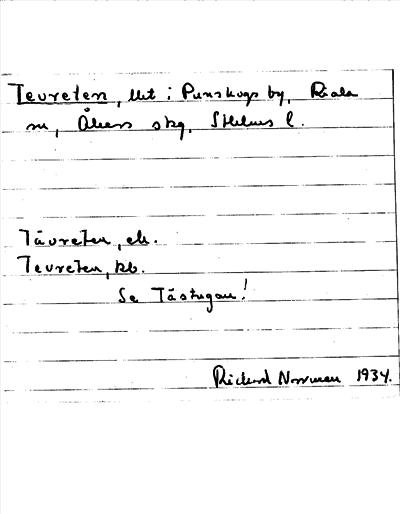 Tevreten, llet i Punskogs by, Riala
sn, Åkers skg, Sthlms l.
Tåvreten, ek.
Tevreten, kb.
Se Tåstugan!
Rickard Norrman 1934.